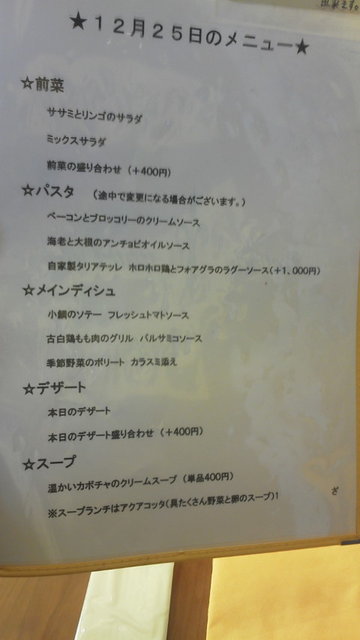 ★１２月２５日のメニュー★
☆前菜
ササミとリンゴのサラダ
ミックスサラダ
前菜の盛り合わせ（＋400円）
☆パスタ　（途中で変更になる場合がございます。）
ベーコンとブロッコリーのクリームソース
海老と大根のアンチョビオイルソース
自家製タリアテッレ　ホロホロ鶏とフォアグラのラグーソース（＋１、000円）
☆メインディシュ
小鯛のソテー　フレッシュトマトソース
古白鶏もも肉のグリル　バルサミコソース
季節野菜のボリート　カラスミ添え
☆デザート
本日のデザート
本日のデザート盛り合わせ（＋400円）
☆スープ
温かいカボチャのクリームスープ（単品400円）
※スープランチはアクアコッタ（具たくさん野菜と卵のスープ）1
ざ